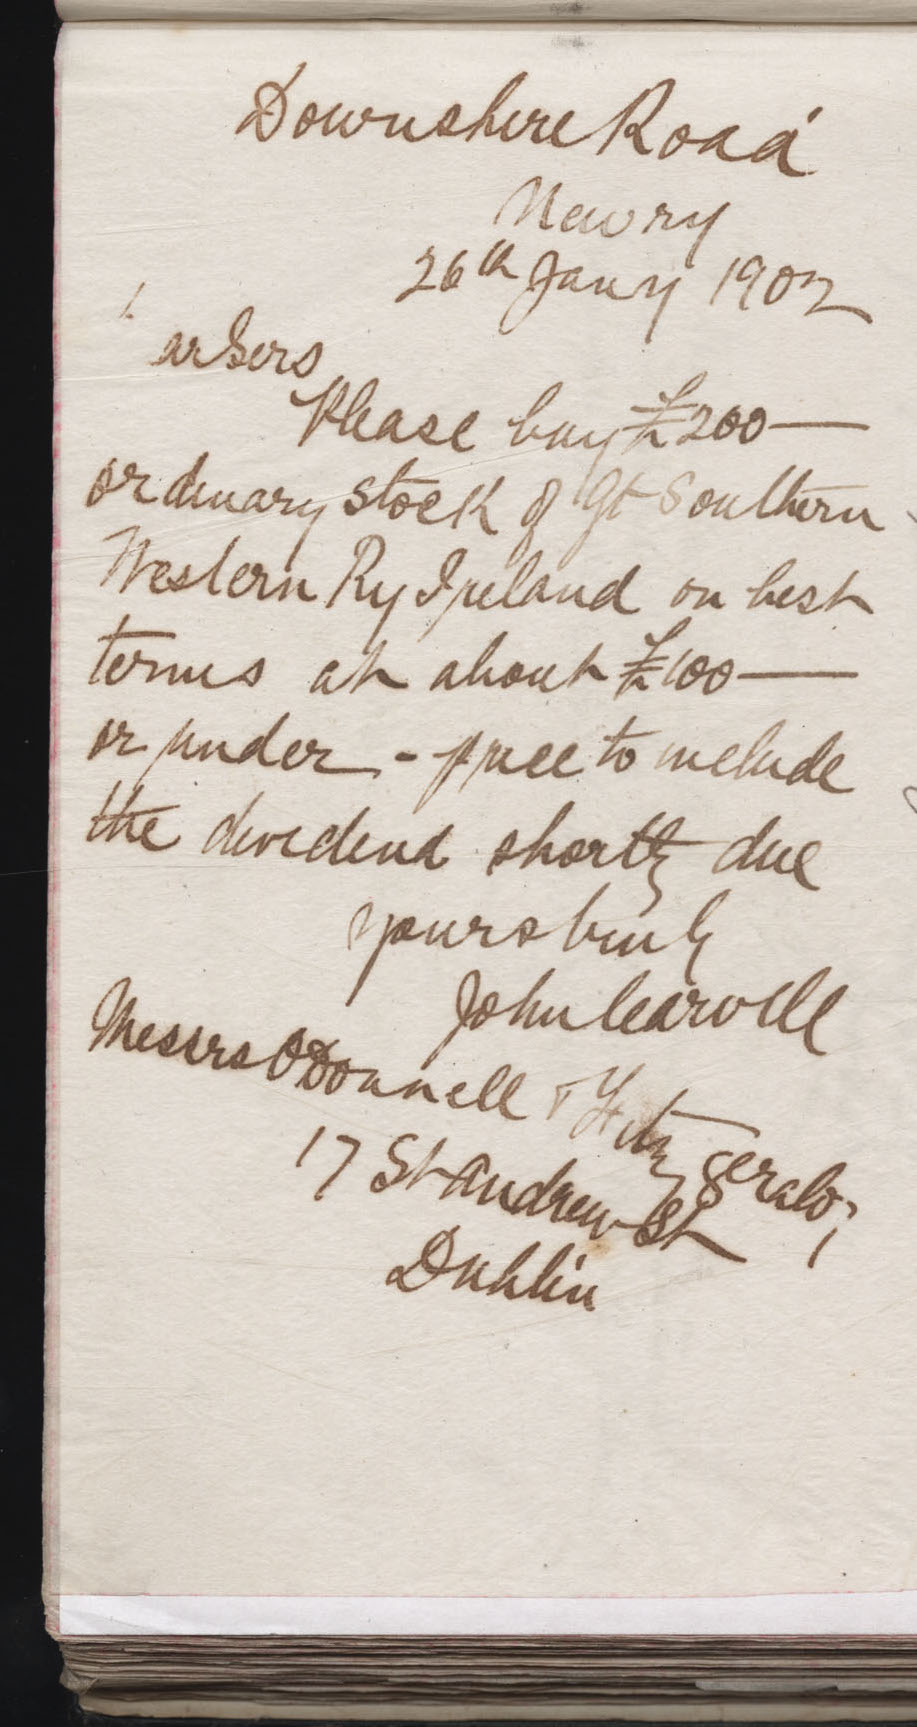 Downshire Road
Newry
26th Jany 1902
ar Sirs
Please buy £200—
ordinary stock of Gt Southern
Western Ry Ireland on best
terms at about £100—
or under - price to include
the dividend shortly due
Yours truly
John Carvill
Messrs O'Donnell & Fitzgerald
17 St Andrew St
Dublin